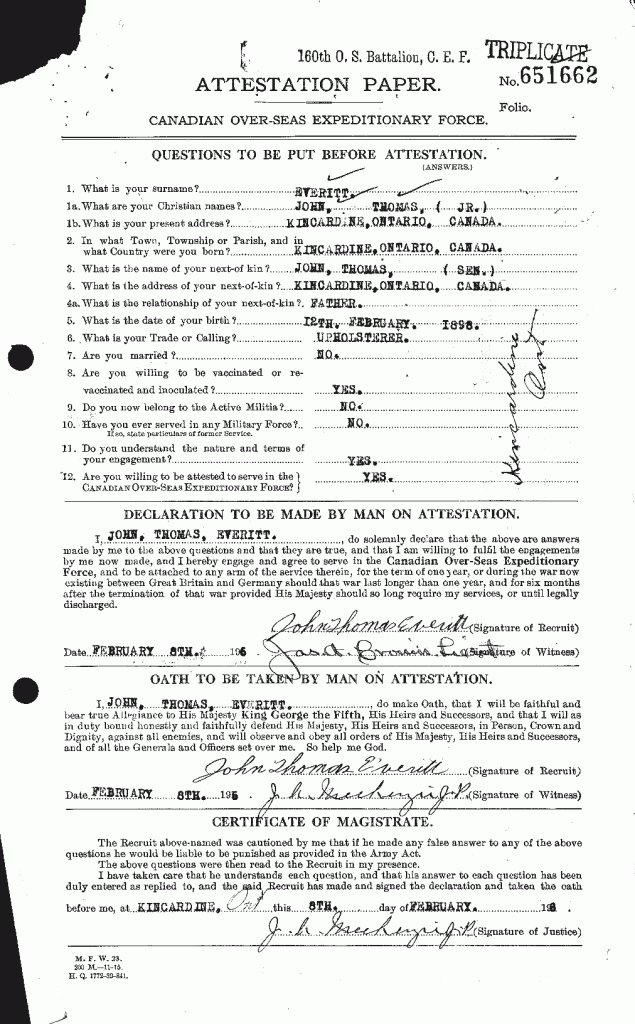 160th O. S. Battalion, C. E. F. TRIPLICATE
ATTESTATION PAPER. No. 651662
Folio.
CANADIAN OVER-SEAS EXPEDITIONARY FORCE.
QUESTIONS TO BE PUT BEFORE ATTESTATION.
(ANSWERS.)
1. What is your surname? EVERITT.
1a. What are your Christian names? JOHN, THOMAS, ( JR.)
1b. What is your present address? KINCARDINE, ONTARIO, CANADA.
2. In what Town, Township or Parish, and in
what Country were you born? KINCARDINE, ONTARIO, CANADA.
3. What is the name of your next-of kin? JOHN, THOMAS, ( SEN.)
4. What is the address of your next-of-kin? KINCARDINE, ONTARIO, CANADA.
4a. What is the relationship of your next-of-kin? FATHER.
5. What is the date of your birth? 12TH. FEBRUARY. 1898.
6. What is your Trade or Calling? UPHOLSTERER.
7. Are you married? NO.
8. Are you willing to be vaccinated or re-
vaccinated and inoculated? YES.
9. Do you now belong to the Active Militia? NO.
10. Have you ever served in any Military Force? NO.
If so, state particulars of former Service.
11. Do you understand the nature and terms of
your engagement? YES.
12. Are you willing to be attested to serve in the
CANADIAN OVER-SEAS EXPEDITIONARY FORCE? YES.
Kincardine
Ont
DECLARATION TO BE MADE BY MAN ON ATTESTATION.
I, JOHN, THOMAS, EVERITT. , do solemnly declare that the above are answers
made by me to the above questions and that they are true, and that I am willing to fulfil the engagements
by me now made, and I hereby engage and agree to serve in the Canadian Over-Seas Expeditionary
Force, and to be attached to any arm of the service therein, for the term of one year, or during the war now
existing between Great Britain and Germany should that war last longer than one year, and for six months
after the termination of that war provided His Majesty should so long require my services, or until legally
discharged.
John Thomas Everitt (Signature of Recruit)
Date FEBRUARY 8TH. 1916 (Signature of Witness)
OATH TO BE TAKEN BY MAN ON ATTESTATION.
I, JOHN, THOMAS, EVERITT. , do make Oath, that I will be faithful and
bear true Allegiance to His Majesty King George the Fifth, His Heirs and Successors, and that I will as
in duty bound honestly and faithfully defend His Majesty, His Heirs and Successors, in Person, Crown and
Dignity, against all enemies, and will observe and obey all orders of His Majesty, His Heirs and Successors,
and of all the Generals and Officers set over me. So help me God.
John Thomas Everitt (Signature of Recruit)
Date FEBRUARY 8TH. 1916 (Signature of Witness)
CERTIFICATE OF MAGISTRATE.
The Recruit above-named was cautioned by me that if he made any false answer to any of the above
questions he would be liable to be punished as provided in the Army Act.
The above questions were then read to the Recruit in my presence.
I have taken care that he understands each question, and that his answer to each question has been
duly entered as replied to, and the said Recruit has made and signed the declaration and taken the oath
before me, at KINCARDINE, Ont this 8TH. day of FEBRUARY. 1916
(Signature of Justice)
M. F. W. 23.
200 M.—11-15.
H. Q. 1772-39-841.